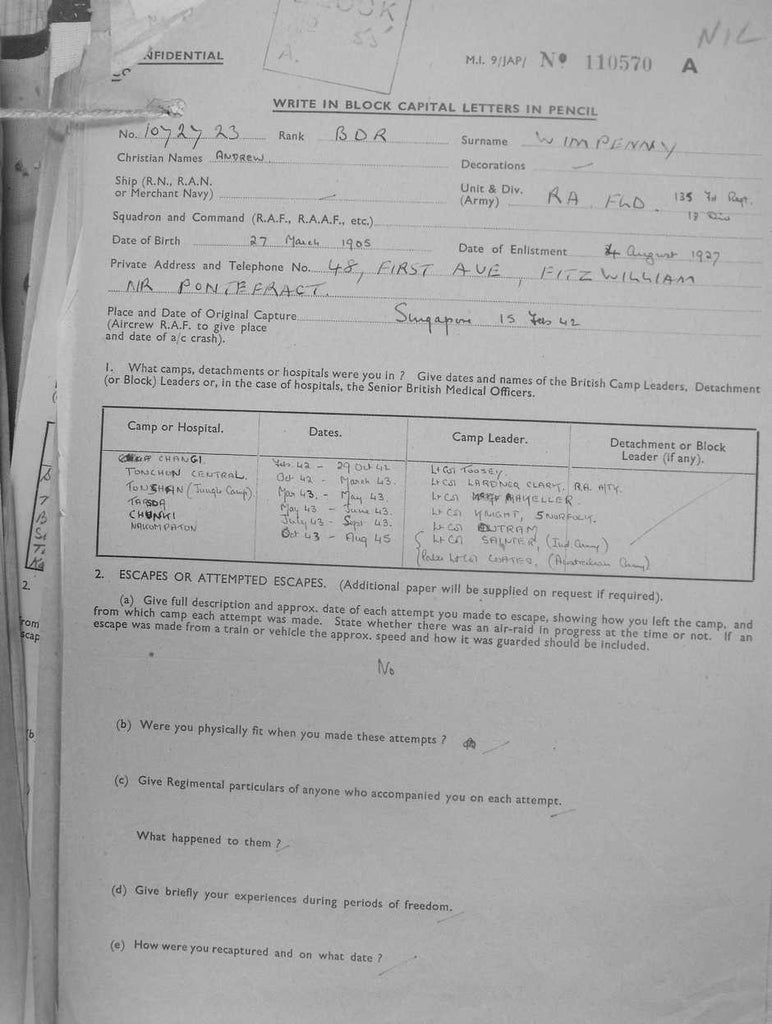 NIL
NFIDENTIAL
M.I. 9/JAP/ No 110570 A
WRITE IN BLOCK CAPITAL LETTERS IN PENCIL
No. 1072723 Rank BDR Surname WIMPENNY
Christian Names ANDREW Decorations —
Ship (R.N., R.A.N.
or Merchant Navy) —
Unit & Div.
(Army) RA FLD. 135 Fd Regt.
18 Div
Squadron and Command (R.A.F., R.A.A.F., etc.)
Date of Birth 27 March 1905 Date of Enlistment 4 August 1927
Private Address and Telephone No. 48, FIRST AVE, FITZWILLIAM
NR PONTEFRACT.
Place and Date of Original Capture Singapore 15 Feb 42
(Aircrew R.A.F. to give place
and date of a/c crash).
1. What camps, detachments or hospitals were you in ? Give dates and names of the British Camp Leaders, Detachment
(or Block) Leaders or, in the case of hospitals, the Senior British Medical Officers.
Camp or Hospital. Dates. Camp Leader. Detachment or Block
Leader (if any).
CHANGI. Feb. 42 - 29 Oct 42 Lt Col TOOSEY.
TONCHON CENTRAL. Oct 42 - March 43. Lt Col LARDNER CLARK, R.A. ATY.
(Jungle Camp) Mar 43. - May 43. Lt Col
May 43 - June 43. Lt Col KNIGHT, 5 NORFOLK.
July 43 - Sept 43. Lt Col OUTRAM
NAKOMPATON Oct 43 - Aug 45 Lt Col (Ind. Army)
Lt Col COATES, (Australian Army)
2. ESCAPES OR ATTEMPTED ESCAPES. (Additional paper will be supplied on request if required).
(a) Give full description and approx. date of each attempt you made to escape, showing how you left the camp, and
from which camp each attempt was made. State whether there was an air-raid in progress at the time or not. If an
escape was made from a train or vehicle the approx. speed and how it was guarded should be included.
No
(b) Were you physically fit when you made these attempts ?
(c) Give Regimental particulars of anyone who accompanied you on each attempt.
What happened to them ?
(d) Give briefly your experiences during periods of freedom.
(e) How were you recaptured and on what date ?